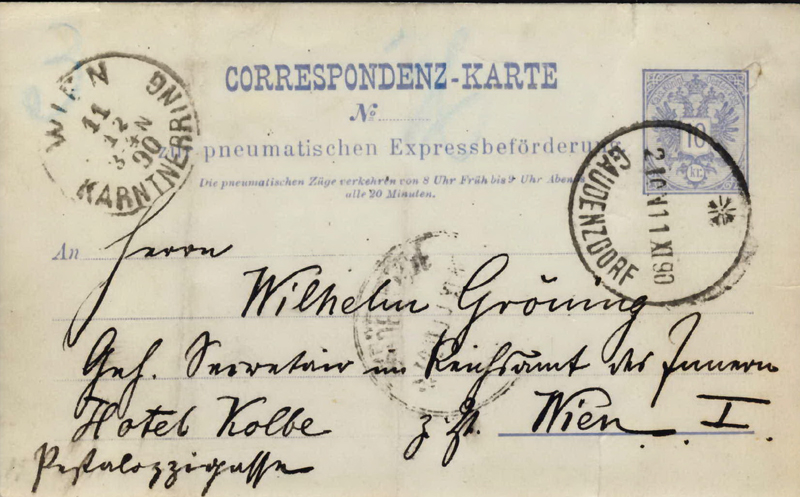 CORRESPONDENZ-KARTE
No
zur pneumatischen Expressbeförderung
Die pneumatischen Züge verkehren von 8 Uhr Früh bis 9 Uhr Abends
alle 20 Minuten.
10
kr.
WIEN
11
12
90
KÄRNTNERRING
GAUDENZDORF
11 XI 90
An Herrn
Wilhelm Gröning
Geh. Secretair im Reichsamt des Innern
Hotel Kolbe z. Zt. Wien I
Pestalozzigasse